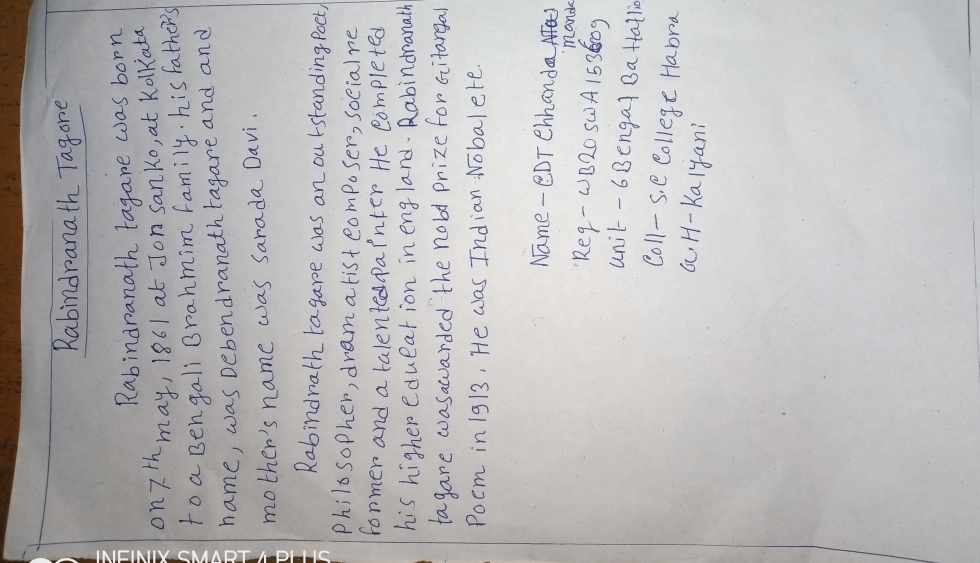 Rabindranath Tagore
Rabindranath tagare was born
on 7th may, 1861 at Jon sanko, at Kolkata
to a Bengali Brahmim family. his father's
name, was Debendranath tagare and and
mother's name was sarada Davi.
Rabindrath tagare was an outstanding Poet,
Philosopher, dramatist composer, social re
former and a talented painter He completed
his higher education in england. Rabindranath
tagare wasawarded the nobd Prize for Gitangal
Poem in 1913. He was Indian Nobal ete.
Name - CDT Chhanda
manda
Reg - WB20SWA153609
Unit - 6 Bengal Battalio
Coll - S.C College Habra
G.H - Kalyani
INFINIX SMART 4 PLUS